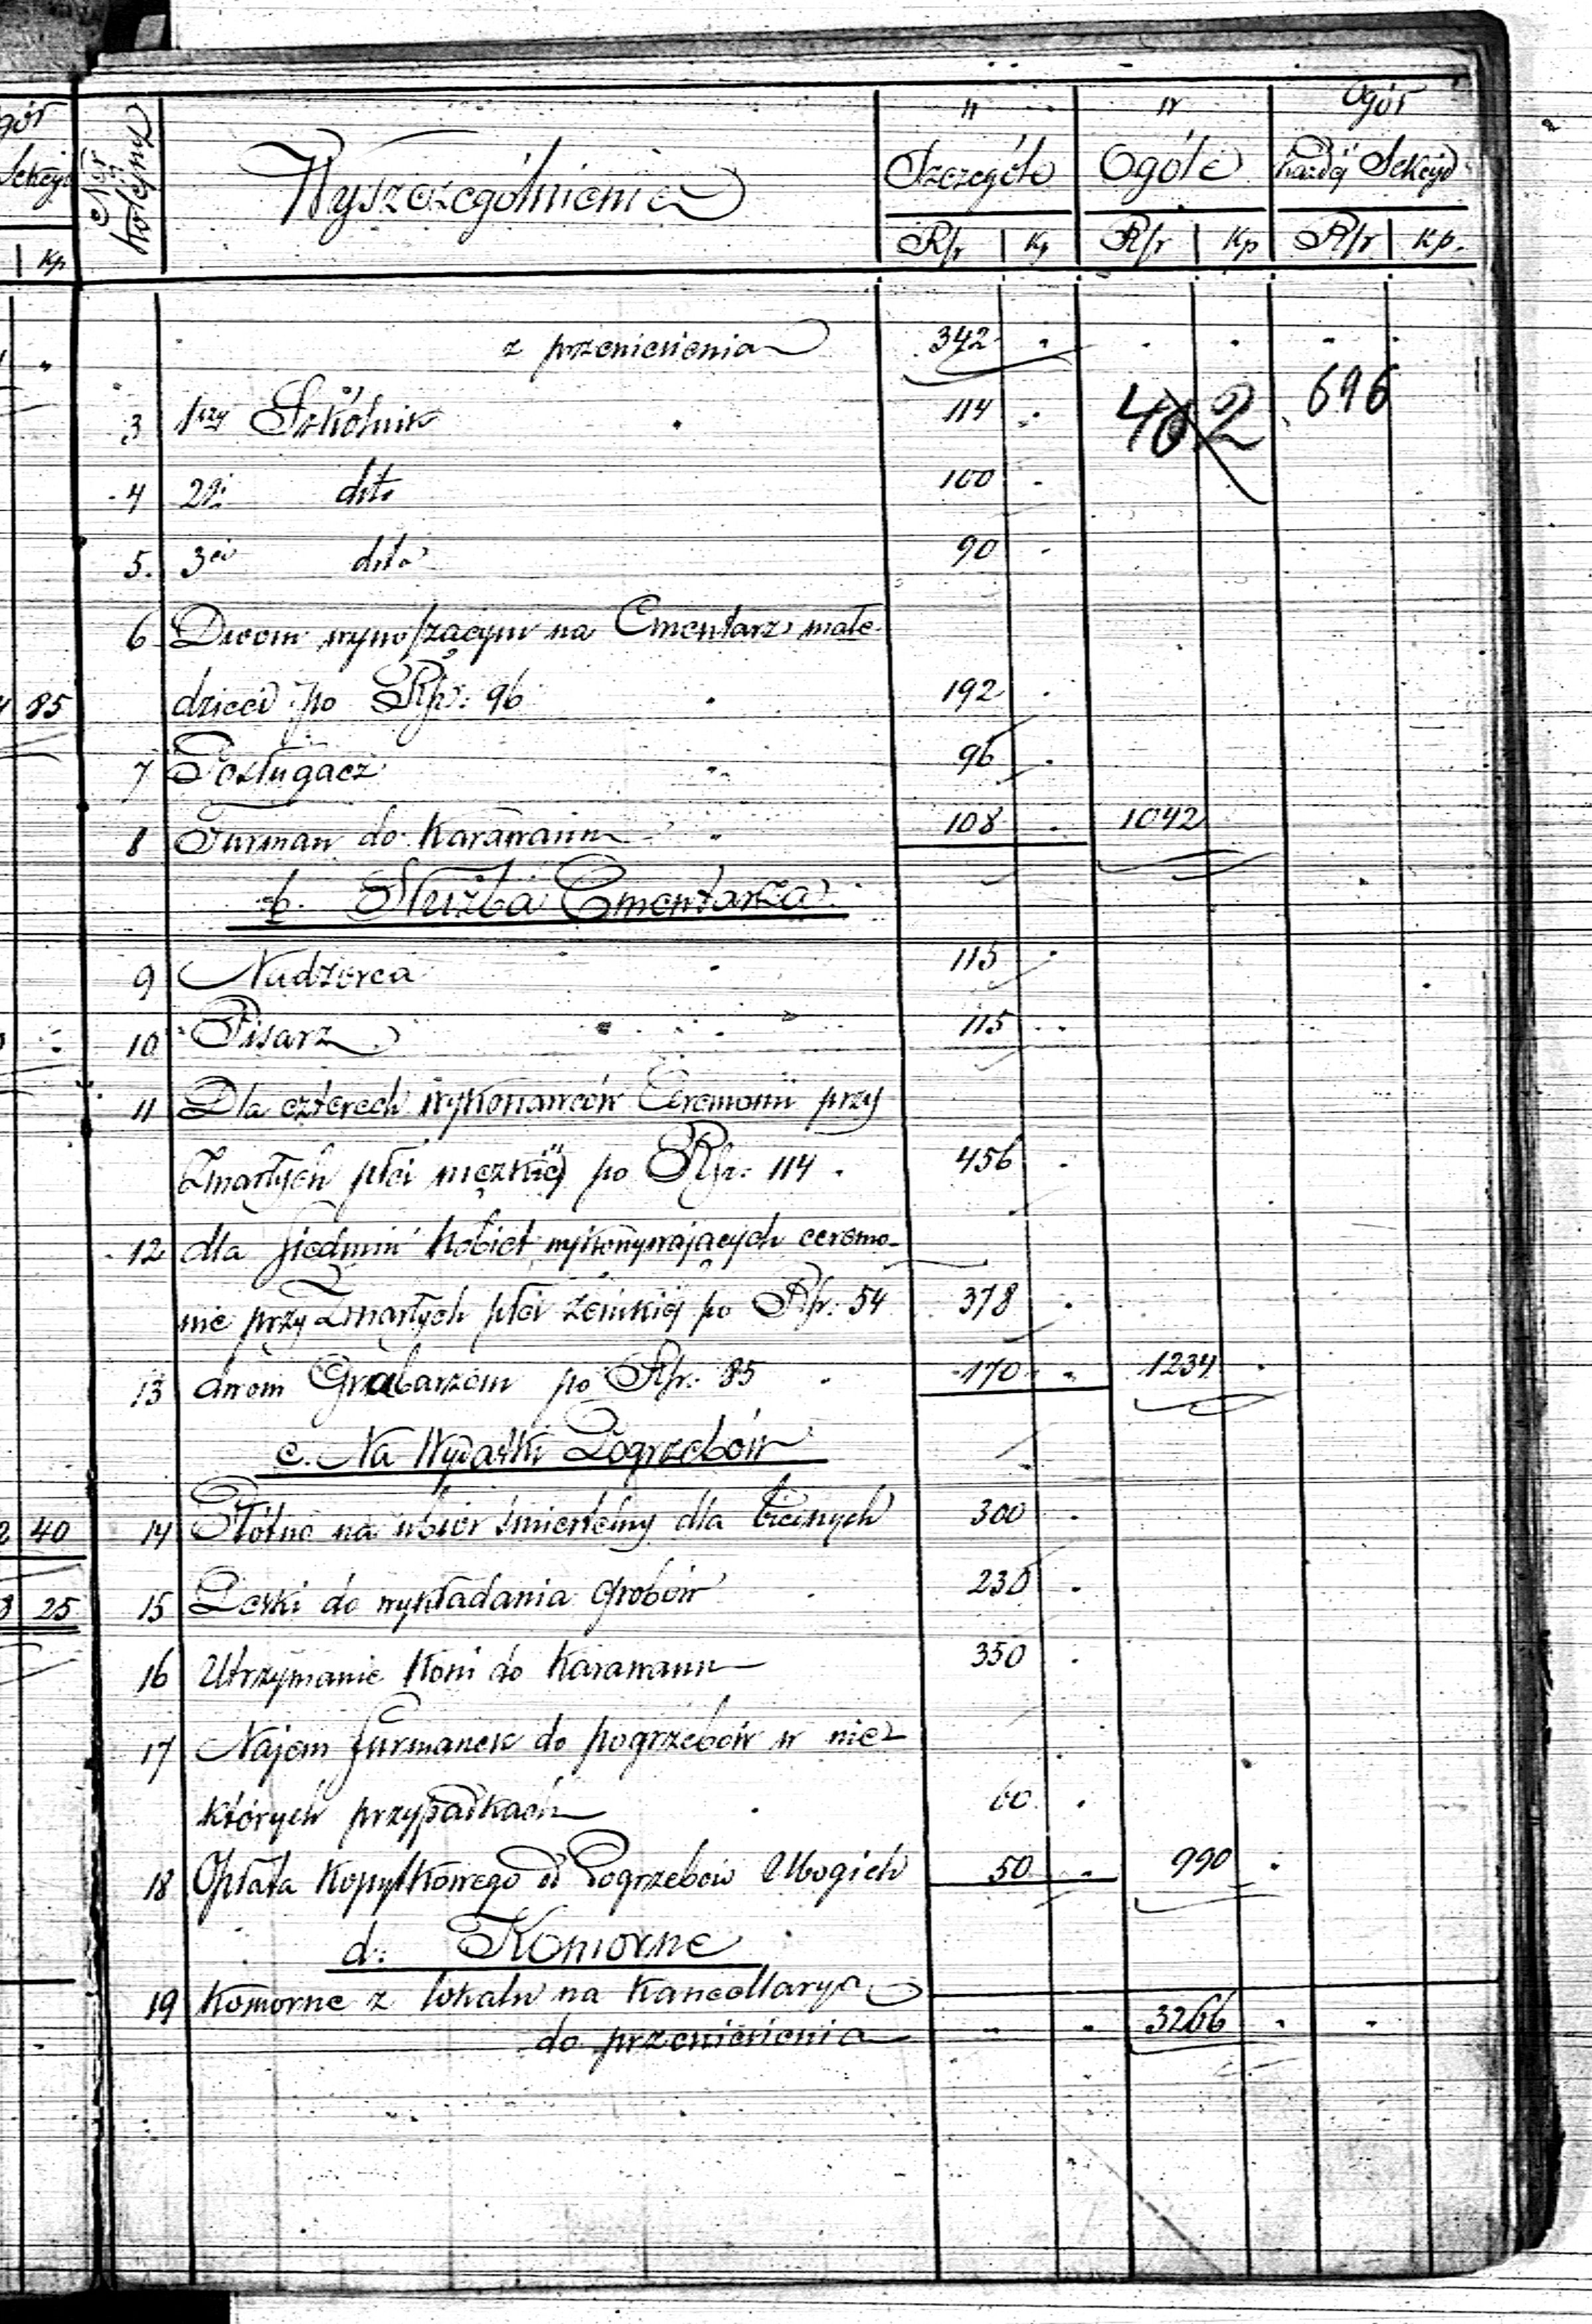 gór
Sekcyi
kp
85
40
25
Nr kolejny
Wyszczególnienie
Szczególe
Ogóle
Ogół
każdej Sekcyi
Rsr Kp Rsr Kp Rsr kp.
z przeniesienia 342
3 1szy Szkólnik 114 402 696
4 2gi dito 100
5. 3ci dito 90
6 Dwom wynoszącym na Cmentarz małe
dzieci po Rsr: 96 192
7 Posługacz 96
8 Furman do Karawanu 108 1042
b. Służba Cmentarza
9 Nadzorca 115
10 Pisarz 115
11 Dla czterech wykonawców Ceremonii przy
Zmarłych płci męzkiéj po Rsr: 114 456
12 dla siedmiu kobiet wykonywających ceremo-
nie przy Zmarłych płci żeńskiéj po Rsr: 54 378
13 dwom Grabarzom po Rsr: 85 170 1234
c. Na Wydatki Pogrzebów
14 Płótno na ubiór śmiertelny dla biednych 300
15 Deski do wykładania grobów 230
16 Utrzymanie Koni do Karawanu 350
17 Najem furmanek do pogrzebów w nie-
których przypadkach 60
18 Opłata Kopytkowego od Pogrzebów Ubogich 50 990
d. Komorne
19 Komorne z lokalu na Kancellaryą
do przeniesienia 3266